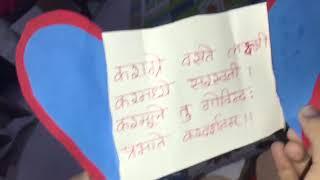 कराग्रे वसते लक्ष्मी
करमध्ये सरस्वती ।
करमूले तु गोविन्दः
प्रभाते करदर्शनम् ।।